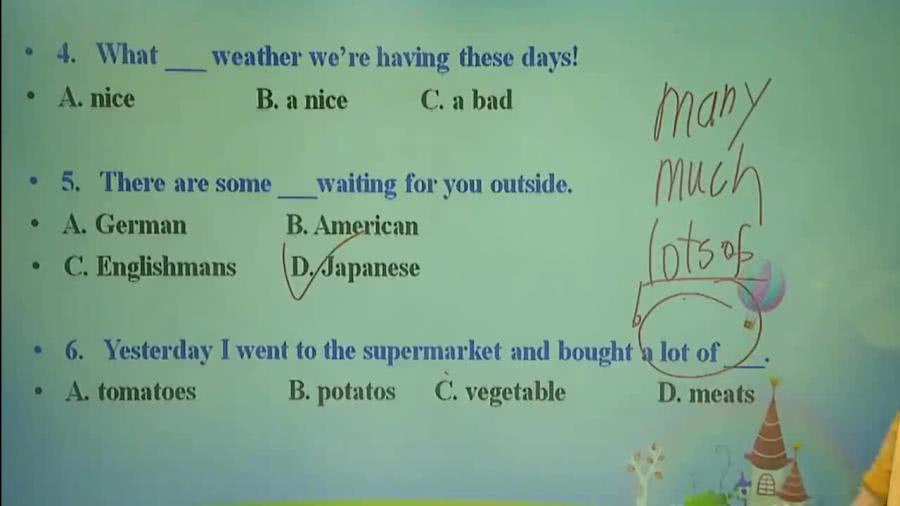 • 4. What ___ weather we're having these days!
• A. nice B. a nice C. a bad
• 5. There are some ___waiting for you outside.
• A. German B. American
• C. Englishmans D. Japanese
• 6. Yesterday I went to the supermarket and bought a lot of ___.
• A. tomatoes B. potatos C. vegetable D. meats
many
much
lots of